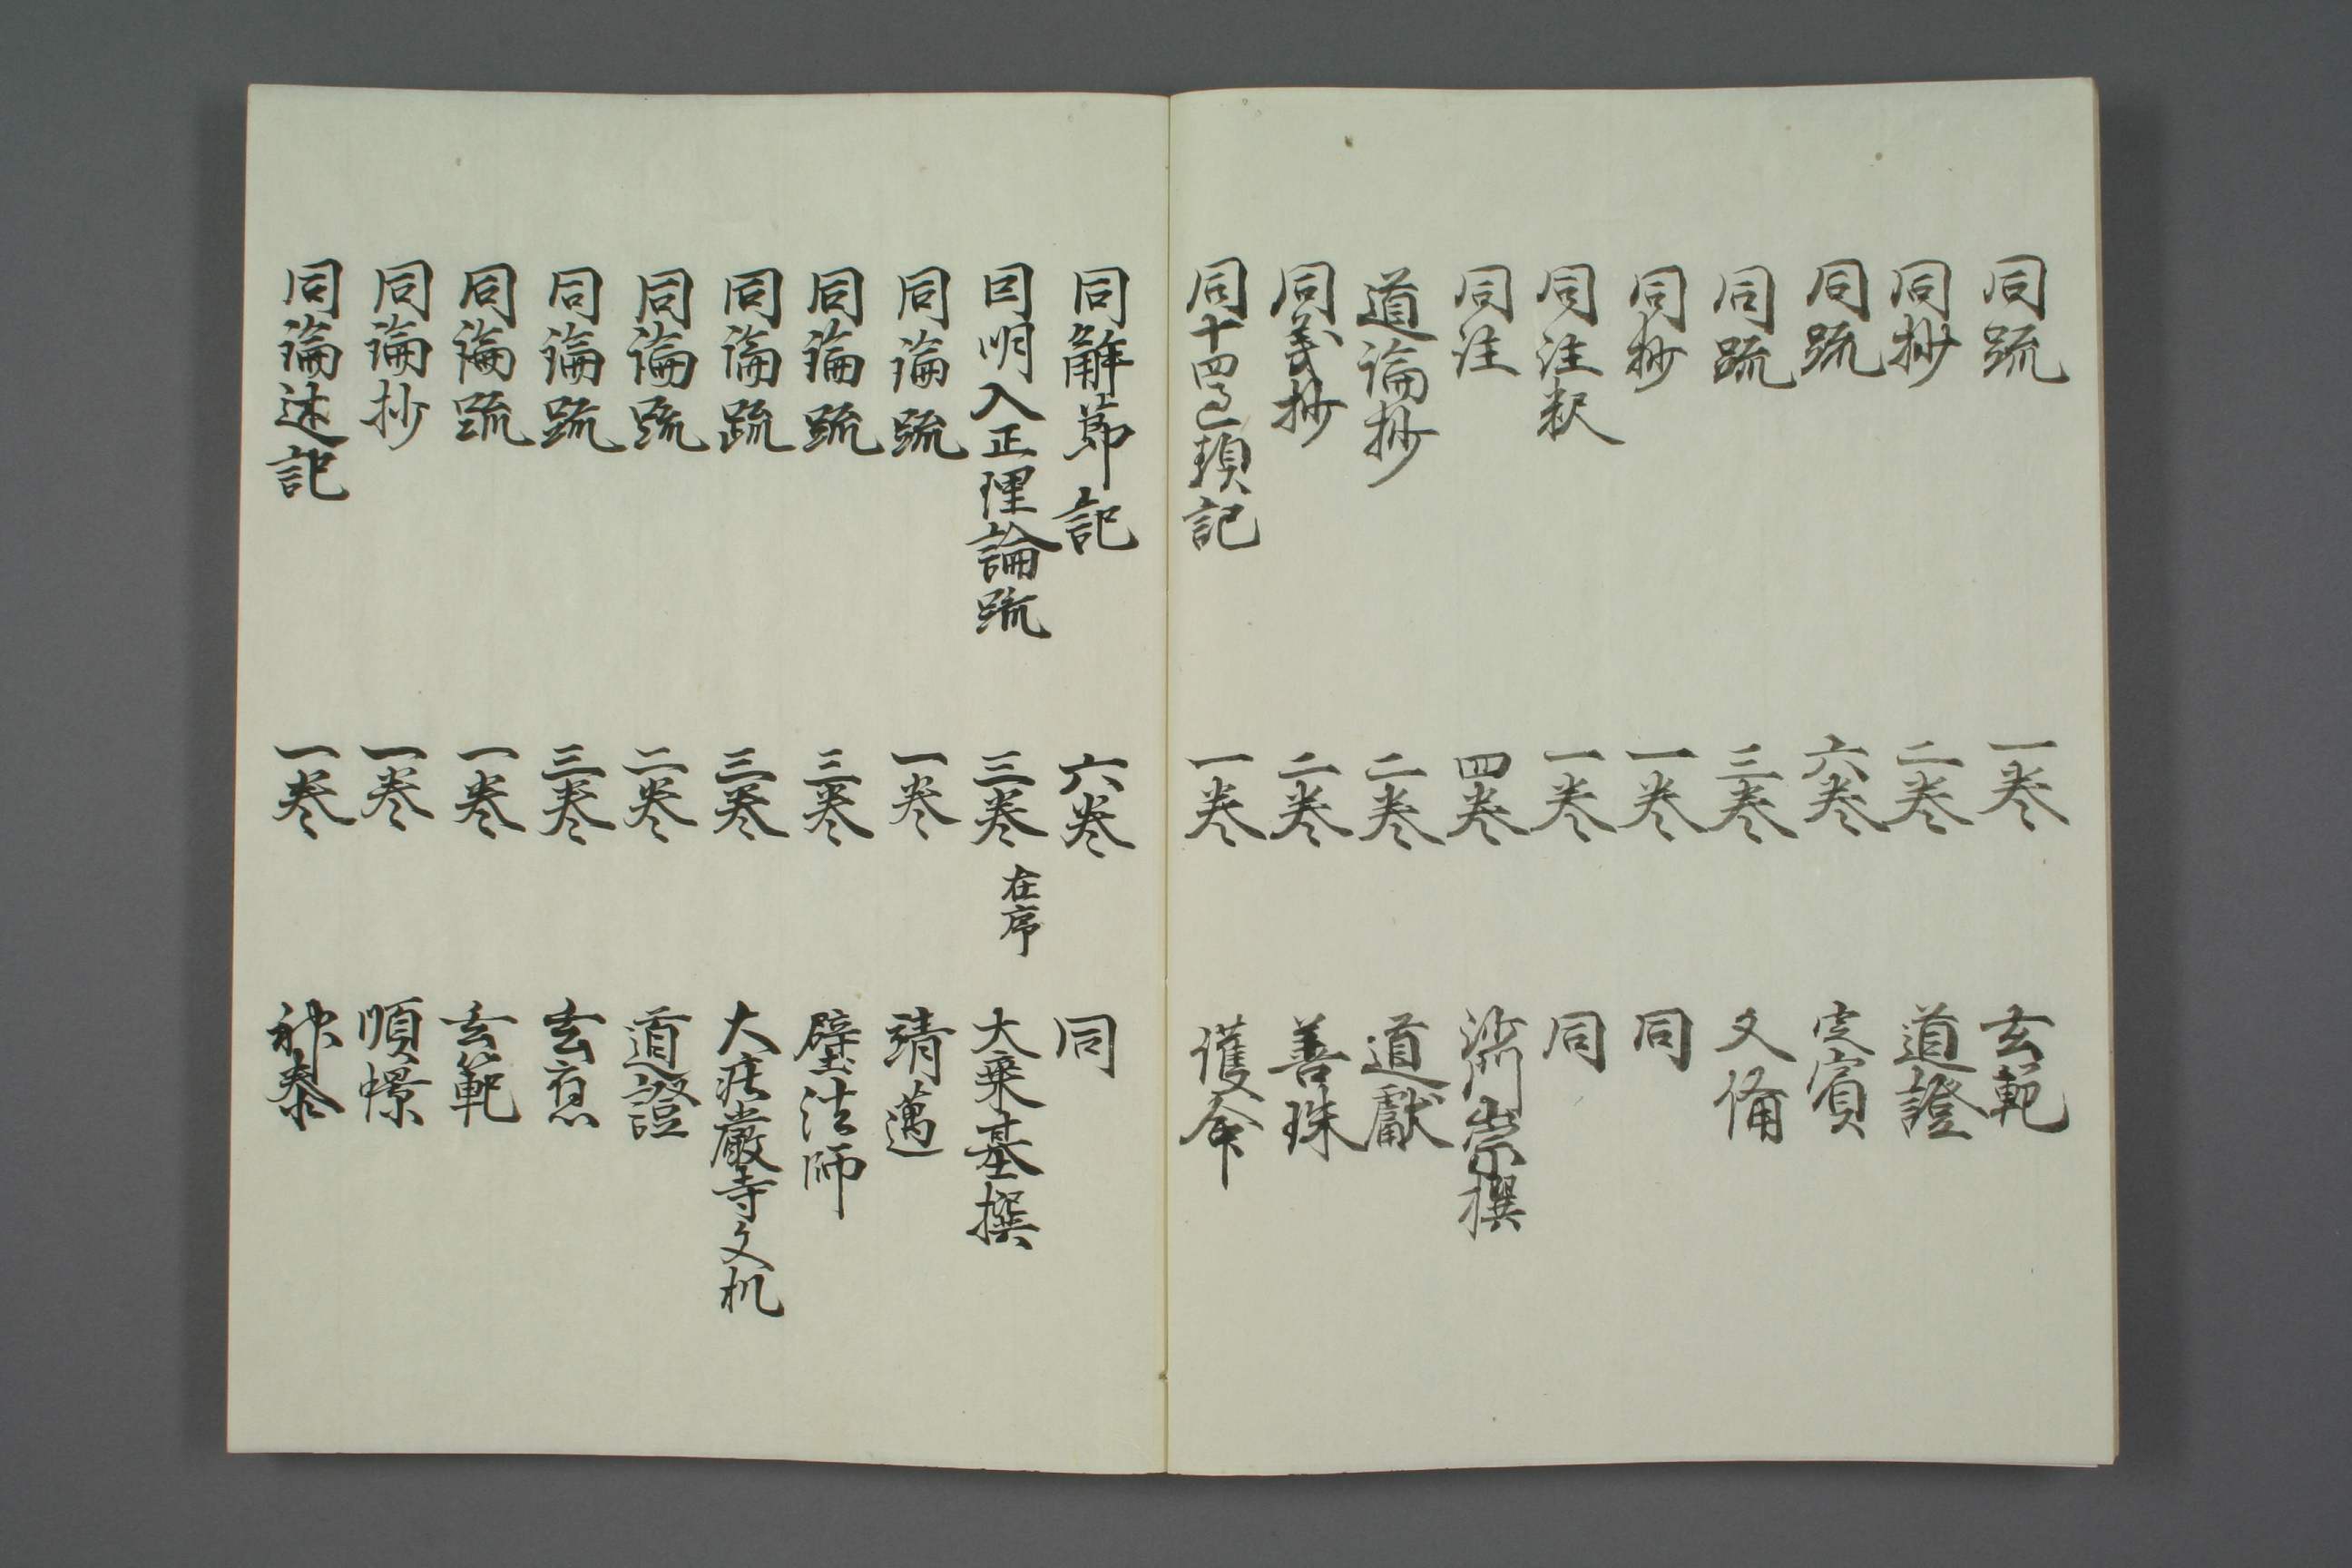 同疏 一巻 玄範
同抄 二巻 道證
同疏 六巻 定賓
同疏 三巻 文備
同抄 一巻 同
同注釈 一巻 同
同注 四巻 浄眼崇撰
道論抄 二巻 道獻
同義抄 二巻 善珠
同十四過類記 一巻 護命
同解節記 六巻 同
因明入正理論疏 三巻 在序 大乗基撰
同論疏 一巻 靖邁
同論疏 三巻 璧法師
同論疏 三巻 大荘嚴寺文机
同論疏 二巻 道證
同論疏 三巻 玄應
同論疏 一巻 玄範
同論抄 一巻 順憬
同論述記 一巻 神泰